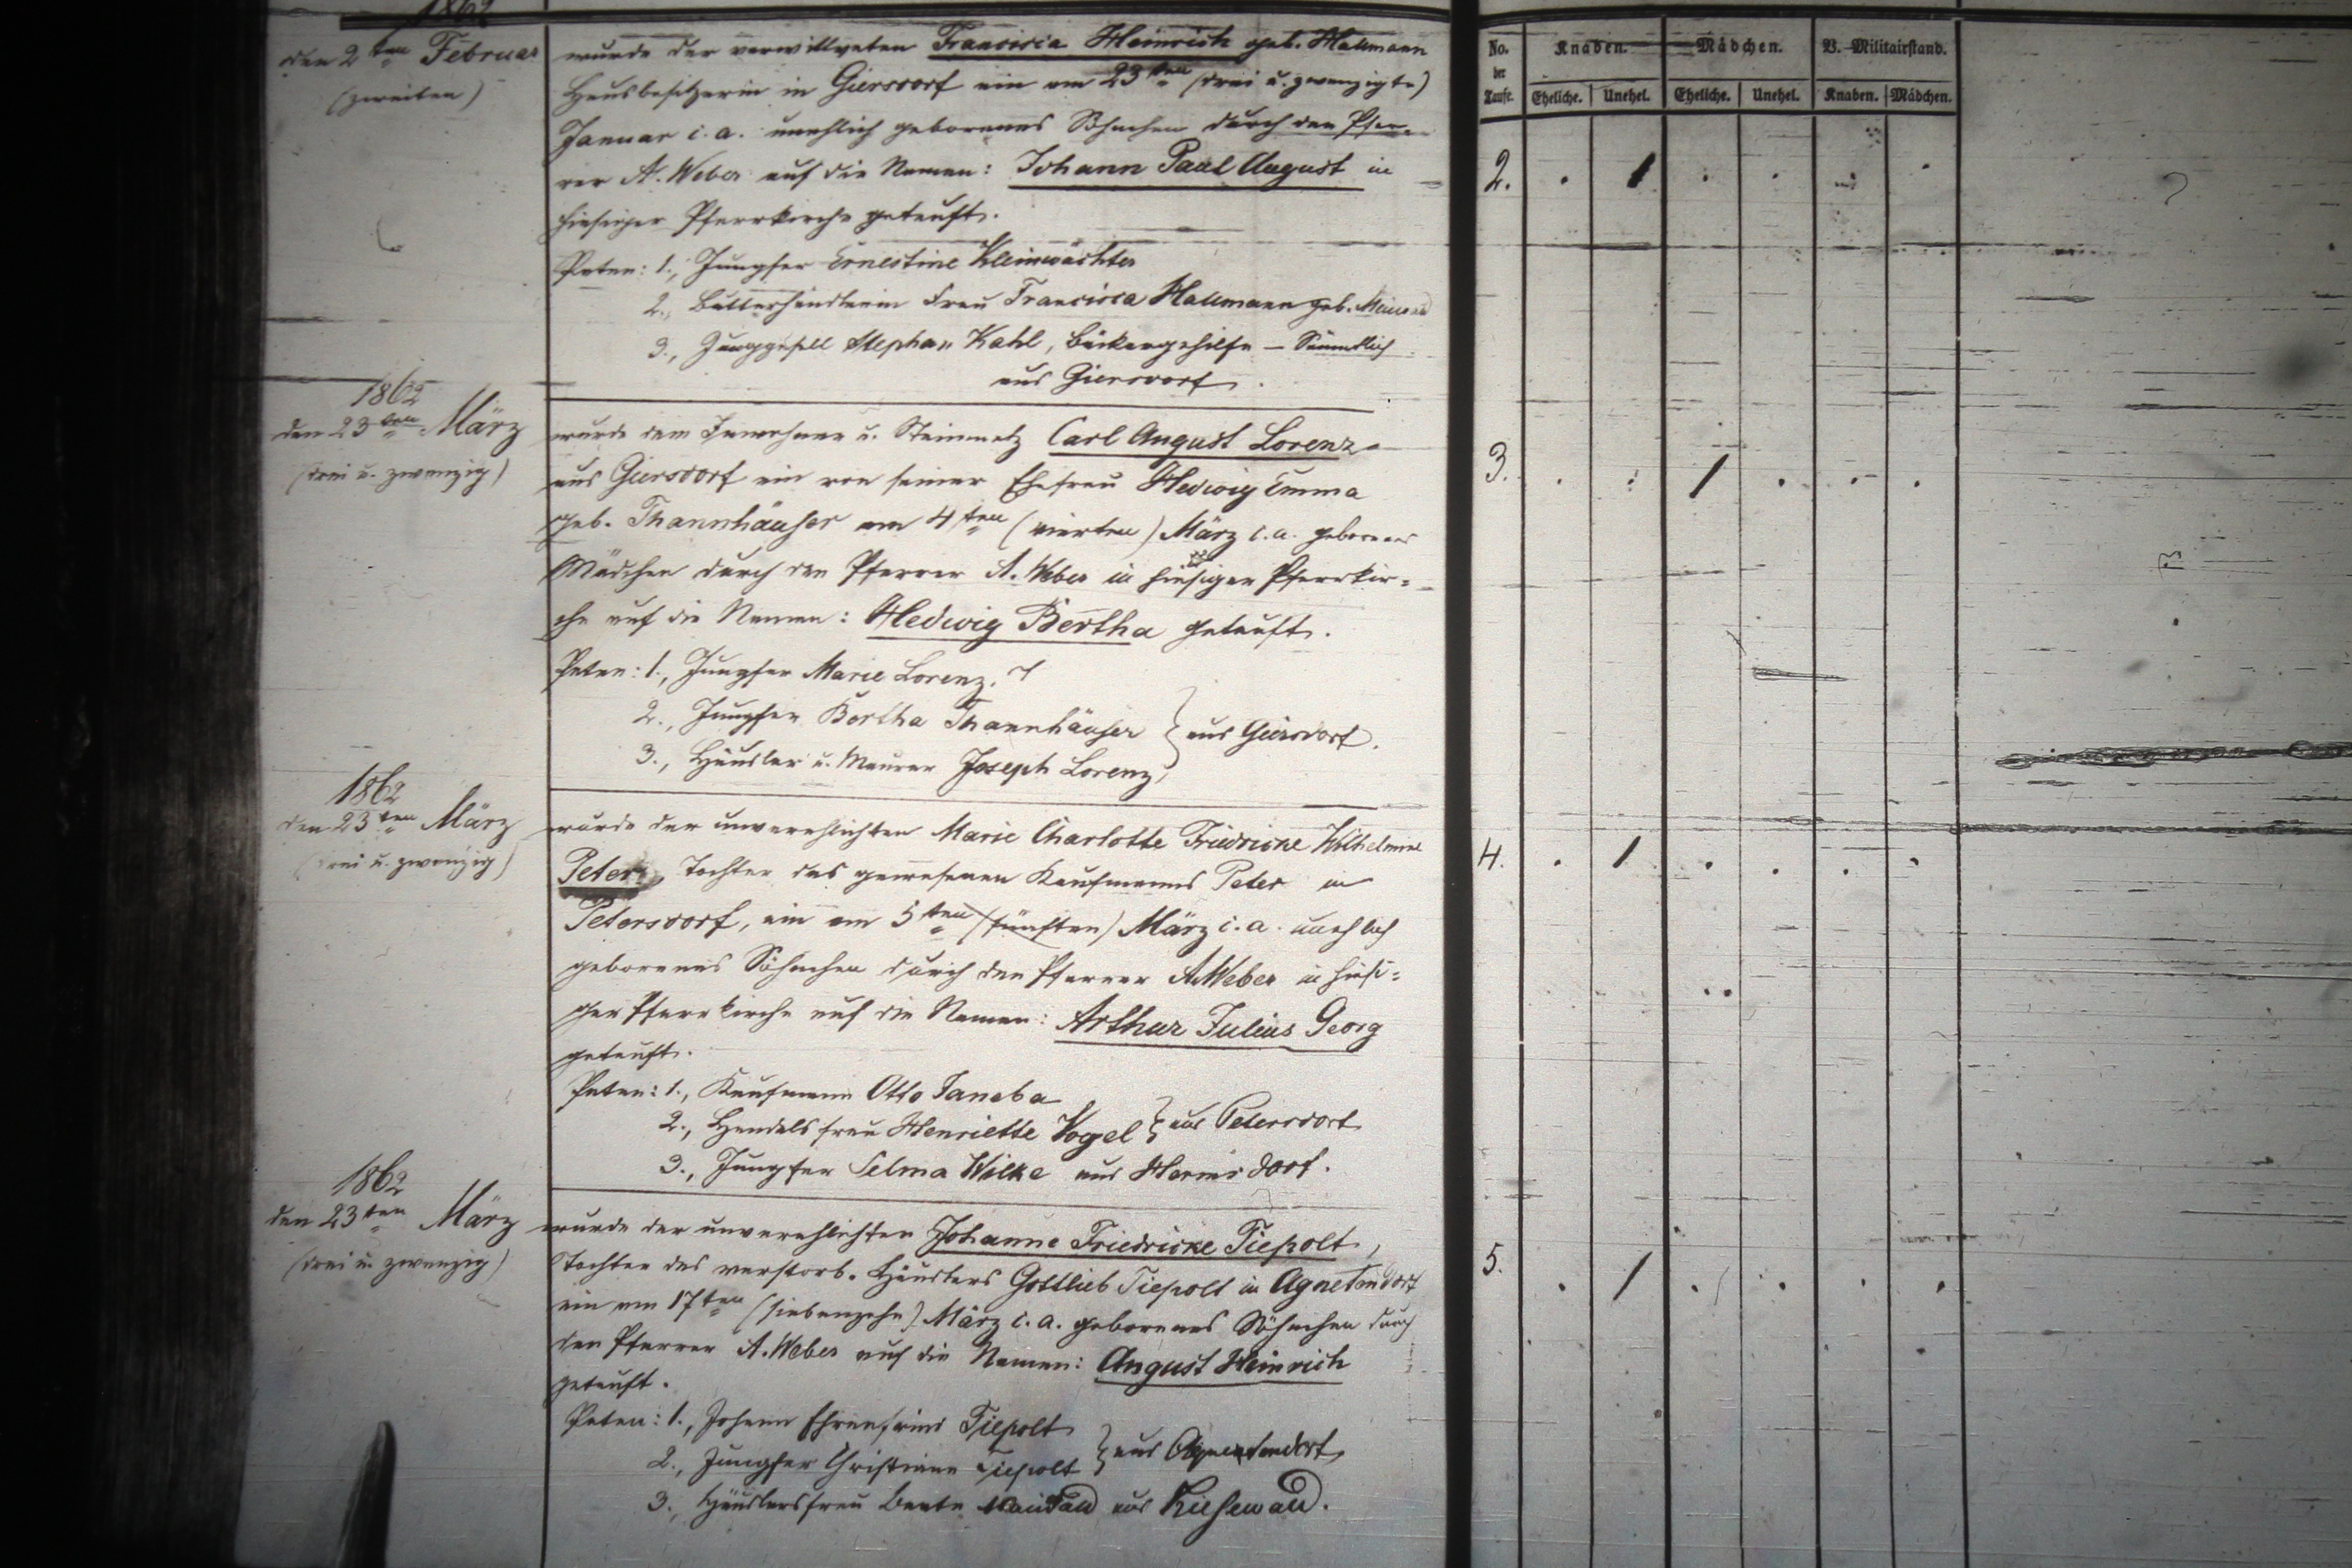 1862
den 2ten Februar
(zweiten)
wurde der verwittweten Francisca Heinrich geb. Hallmann
Hausbesitzerin in Giersdorf ein am 23ten (drei u. zwanzigte)
Januar c. a. unehlich geborenes Söhnchen durch den Pfar-
rer A. Weber auf die Namen: Johann Paul August in
hiesiger Pfarrkirche getauft.
Paten: 1., Jungfer Ernestine Kleinwächter
2., Butterhändlerin Frau Francisca Hallmann geb.
3., Junggesell Stephan Kahl, Bäckergehilfe – Sämmtlich
aus Giersdorf.
1862
den 23ten März
(drei u. zwanzig)
wurde dem Inwohner u. Steinmetz Carl August Lorenz
aus Giersdorf ein von seiner Ehefrau Hedwig Emma
geb. Thannhäuser am 4ten (vierten) März c. a. geborenes
Mädchen durch den Pfarrer A. Weber in hiesiger Pfarrkir=
che auf die Namen: Hedwig Bertha getauft.
Paten: 1., Jungfer Marie Lorenz.
2., Jungfer Bertha Thannhäuser } aus Giersdorf.
3., Häusler u. Maurer Joseph Lorenz
1862
den 23ten März
(drei u. zwanzig)
wurde der unverehlichten Marie Charlotte Friedricke Wilhelmine
Peter, Tochter des gewesenen Kaufmanns Peter in
Petersdorf, ein am 5ten (fünften) März c. a. unehlich
geborenes Söhnchen durch den Pfarrer A. Weber in hiesi=
ger Pfarrkirche auf die Namen: Arthur Julius Georg
getauft.
Paten: 1., Kaufmann Otto
2., Handelsfrau Henriette Vogel } aus Petersdorf
3., Jungfer Selma Wilke aus Hermsdorf.
1862
den 23ten März
(drei u. zwanzig)
wurde der unverehlichten Johanne Friedricke Tiepolt,
Tochter des verstorb. Häuslers Gottlieb Tiepolt in Agnetendorf
ein am 17ten (siebenzehn) März c. a. geborenes Söhnchen durch
den Pfarrer A. Weber auf die Namen: August Heinrich
getauft.
Paten: 1., Johann Ehrenfried Tiepolt
2., Jungfer Christiane Tiepolt } aus Agnetendorf
3., Häuslersfrau Beate aus Kiesewald.
No. der Taufe.
Knaben.
Mädchen.
V. Militairstand.
Eheliche.
Unehel.
Eheliche.
Unehel.
Knaben.
Mädchen.
2. . 1 . . .
3. . . 1 . . .
4. . 1 . . . .
5. . 1 . . . .